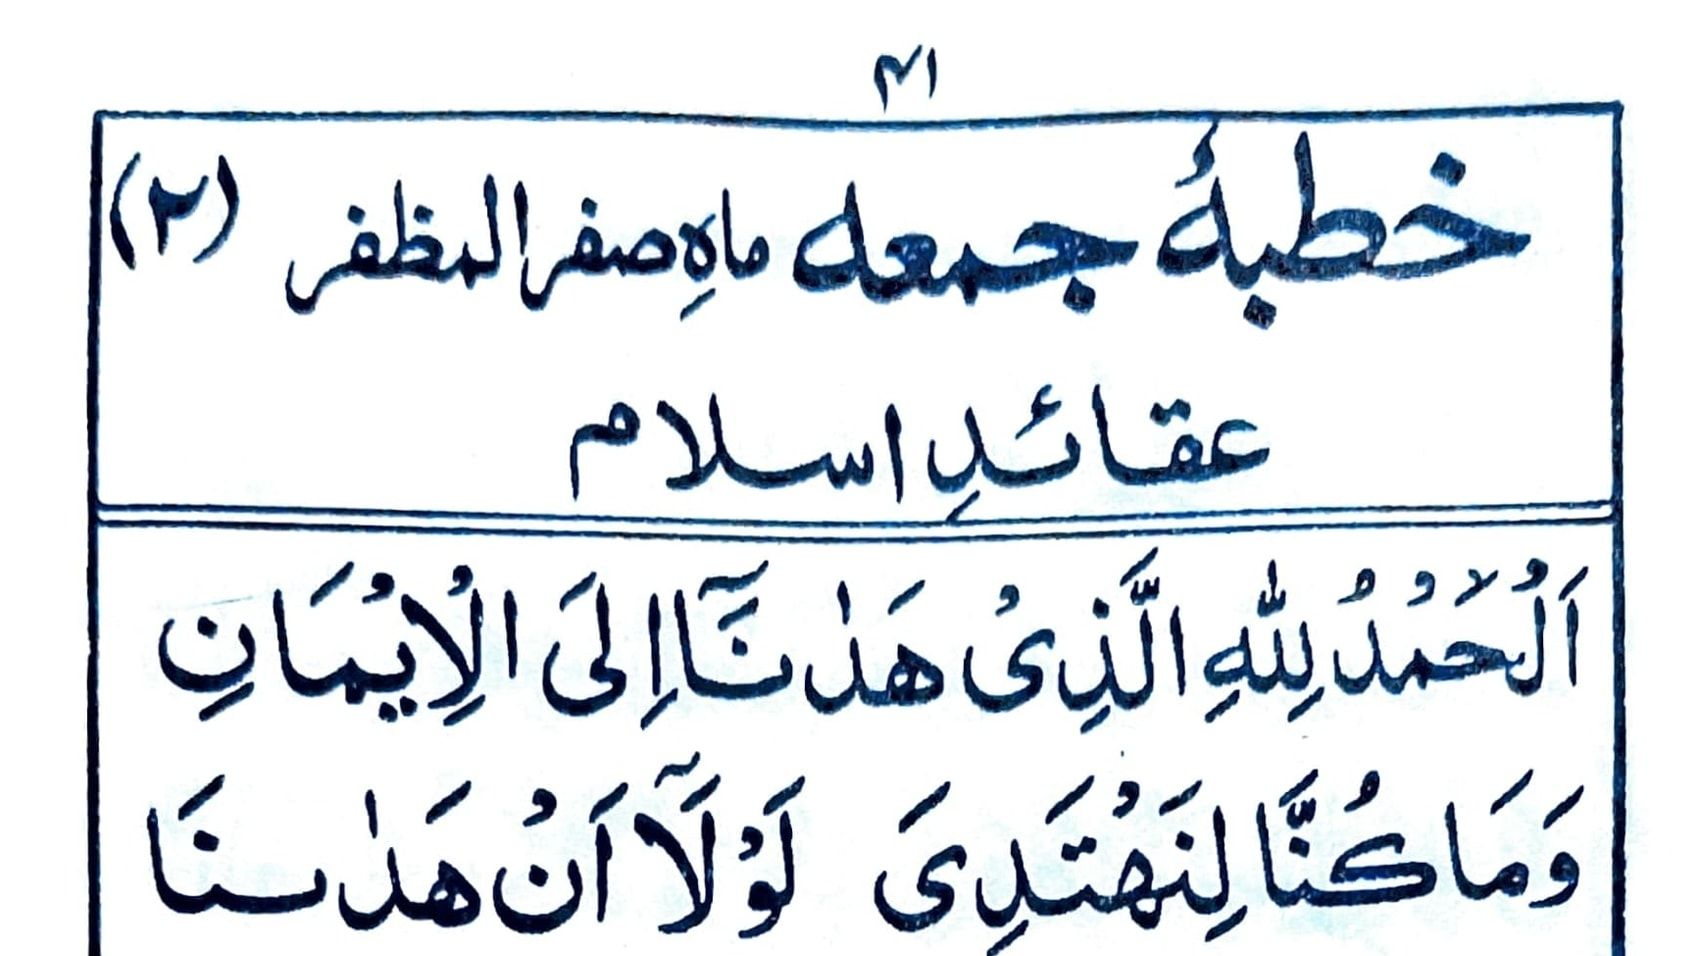 ۴۱
خطبۂ جمعہ ماہِ صفر المظفر (۲)
عقائدِ اسلام
اَلْحَمْدُ لِلّٰهِ الَّذِىْ هَدٰىنَآ اِلَى الْاِيْمَانِ
وَمَا كُنَّا لِنَهْتَدِىَ لَوْلَآ اَنْ هَدٰىنَا